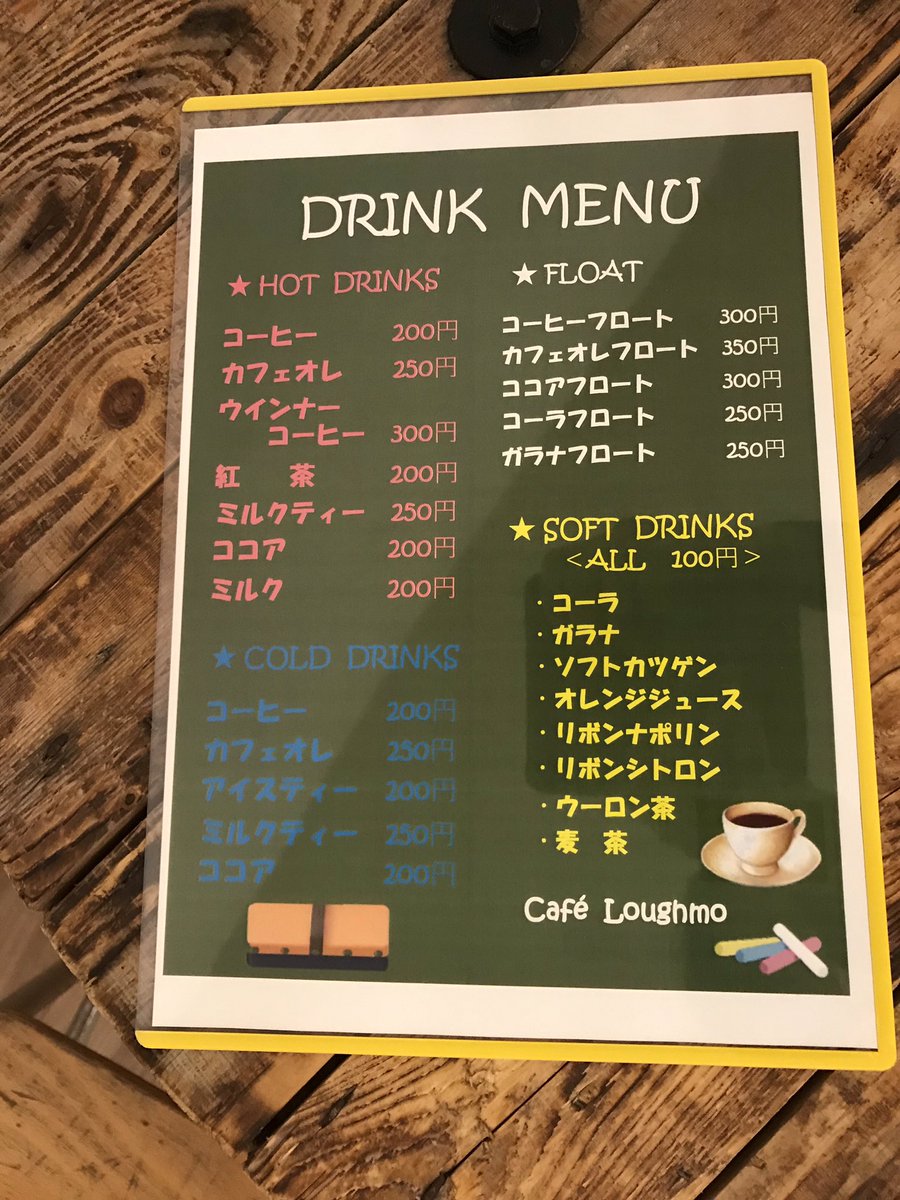 DRINK MENU
★HOT DRINKS
コーヒー 200円
カフェオレ 250円
ウインナー
コーヒー 300円
紅 茶 200円
ミルクティー 250円
ココア 200円
ミルク 200円
★COLD DRINKS
コーヒー 200円
カフェオレ 250円
アイスティー 200円
ミルクティー 250円
ココア 200円
★FLOAT
コーヒーフロート 300円
カフェオレフロート 350円
ココアフロート 300円
コーラフロート 250円
ガラナフロート 250円
★SOFT DRINKS
＜ALL 100円＞
・コーラ
・ガラナ
・ソフトカツゲン
・オレンジジュース
・リボンナポリン
・リボンシトロン
・ウーロン茶
・麦 茶
Café Loughmo